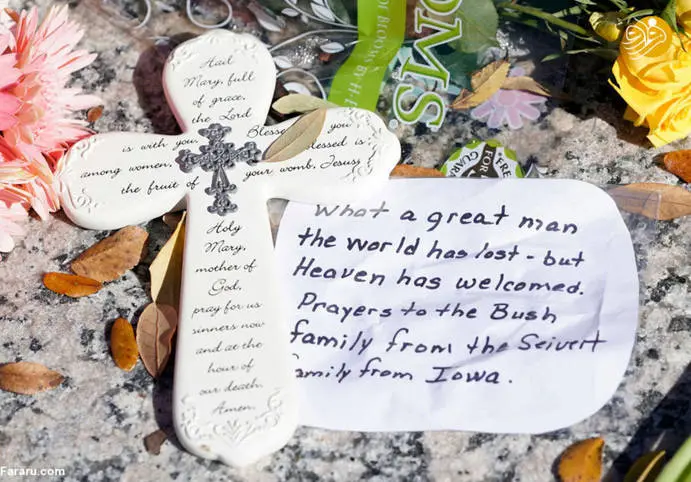 OMS
BLOOMS
FREE
FOR
GUARA
Hail
Mary, full
of grace,
the Lord
is with you.
Blesse you
among women,
lessed is
the fruit of
your womb, Jesus.
Holy
Mary,
mother of
God,
pray for us
sinners now
and at the
hour of
our death.
Amen.
What a great man
the world has lost - but
Heaven has welcomed.
Prayers to the Bush
family from the Seivert
amily from Iowa.
Fararu.com